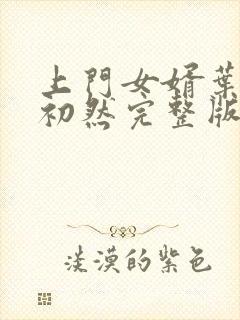 上門女婿葉
初然完整版
淡漠的紫色